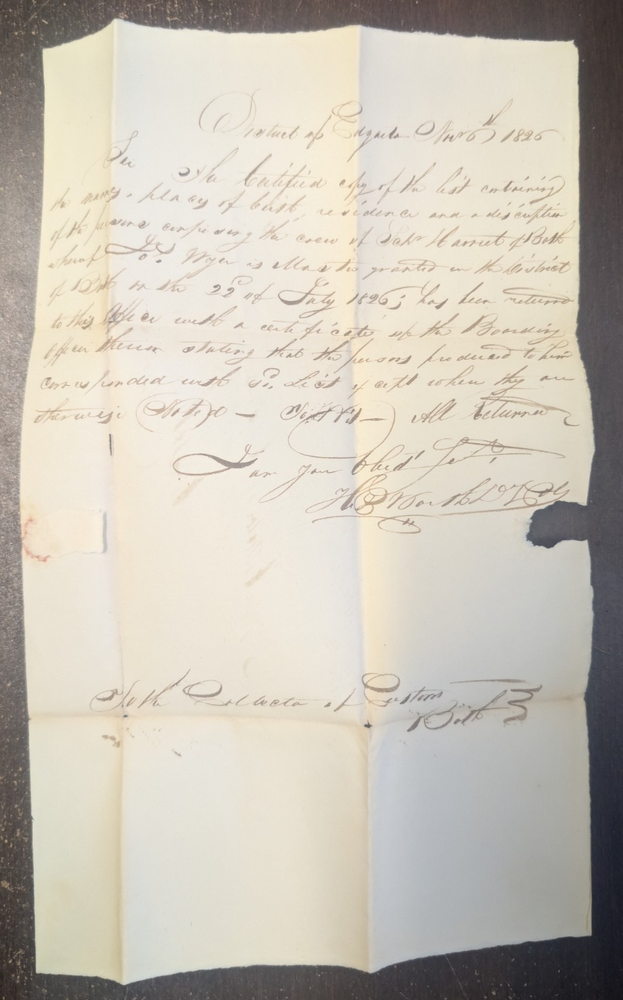 District of Edgarto Novr 6th 1826
Sir The Certified copy of the list containing
the names, places of birth, residence and a discription
of the persons composing the crew of Schr Harriet of Bath
whereof Jos. Wyer is Master granted in the District
of Bath on the 22d of July 1826; has been returned
to this Office with a certificate of the Boarding
Officer thereon stating that the persons produced to him
corresponded with sd List except when they are
otherwise Noted — All Returned
I am your Obedt Sert
H.
To the Collector of Customs
Bath